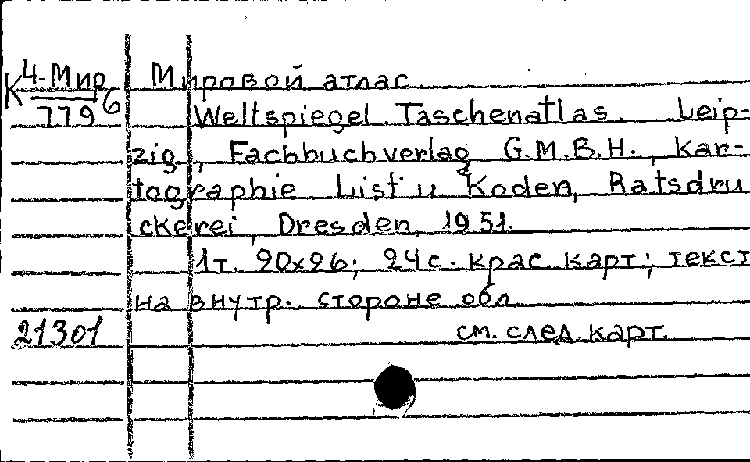 К 4-Мир Мировой атлас.
7796 Weltspiegel Taschenatlas. Leip-
zig, Fachbuchverlag G.M.B.H., Kar-
tographie List u Koden, Ratsdru
ckerei, Dresden, 1951.
1т. 20x26; 24с. крас. карт; текст
на внутр. стороне обл.
21301 см. след. карт.